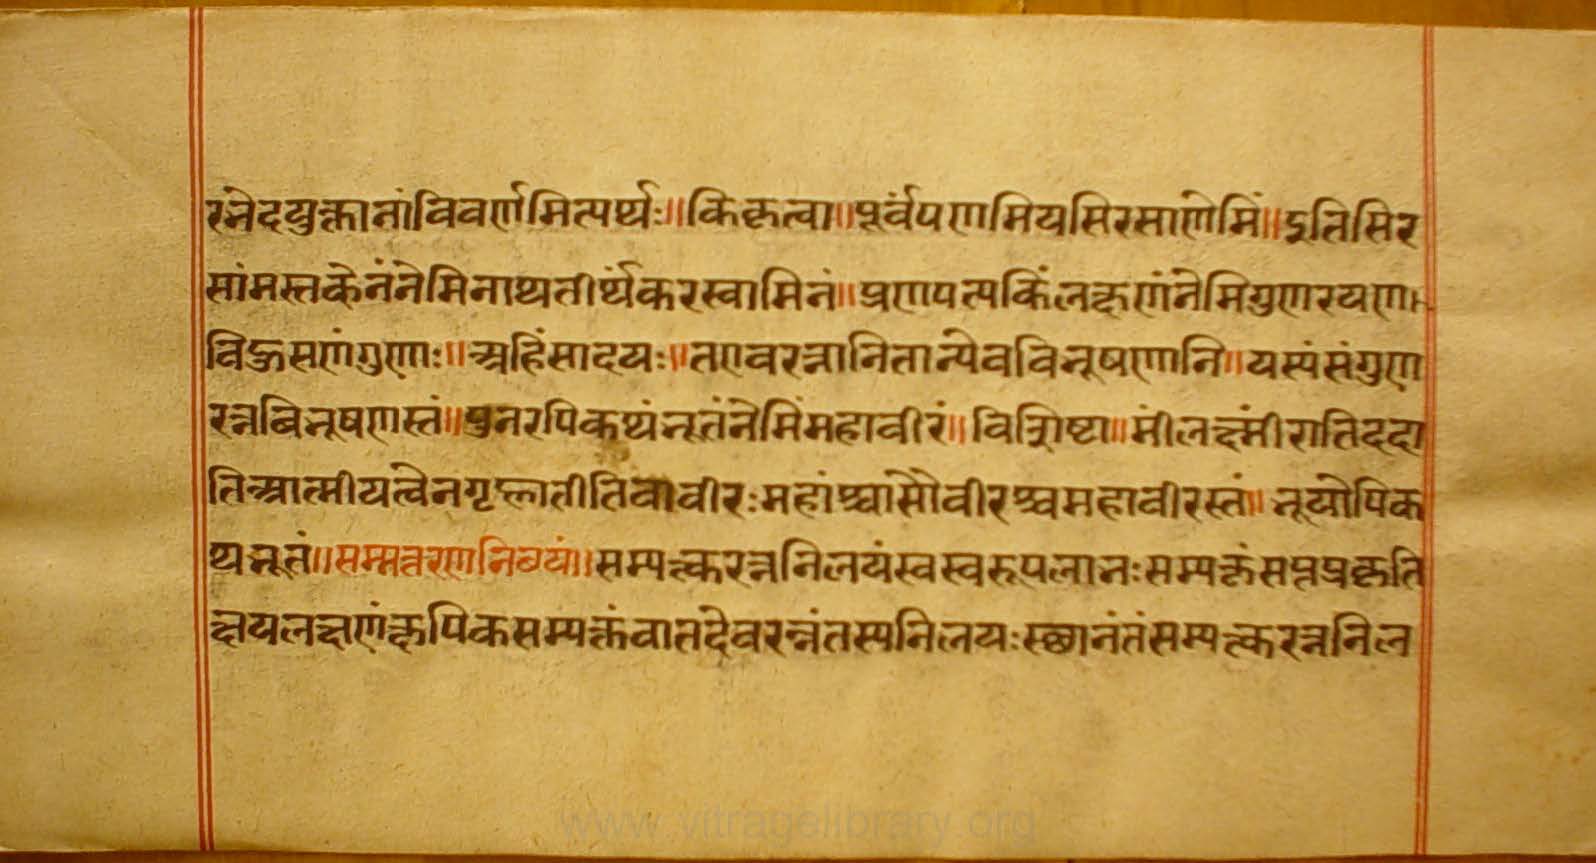 रभेदयुक्तानांविवर्णमित्यर्थः॥किंकृत्वा॥पूर्वंपणमियसिरसाणेमिं॥इतिसिर
सांमस्तकेनंनेमिनाथतीर्थंकरस्वामिनं॥प्रणपत्यकिंलक्षणंनेमिगुणरयण
विभुसणंगुणाः॥अहिंसादयः॥तएवरत्नानितान्येवविभूषणानि॥यस्यंसंगुण
रत्नविभूषणस्तं॥पुनरपिकथंभूतंनेमिंमहावीरं॥विशिष्टा॥मींलक्ष्मींरातिददा
तिआत्मीयत्वेनगृह्णातीतिवावीरःमहांश्चासौवीरश्चमहावीरस्तं॥भूयोपिक
थभूतं॥सम्मत्तरयणनिलयं॥सम्यत्क्करत्ननिलयंस्वस्वरूपलाभःसम्यक्तंसप्तप्रकृति
क्षयलक्षणंक्षपिकसम्यक्तंवातदेवरत्नंतस्यनिलयःस्थानंतंसम्यत्क्करत्ननिल
www.vitragelibrary.org